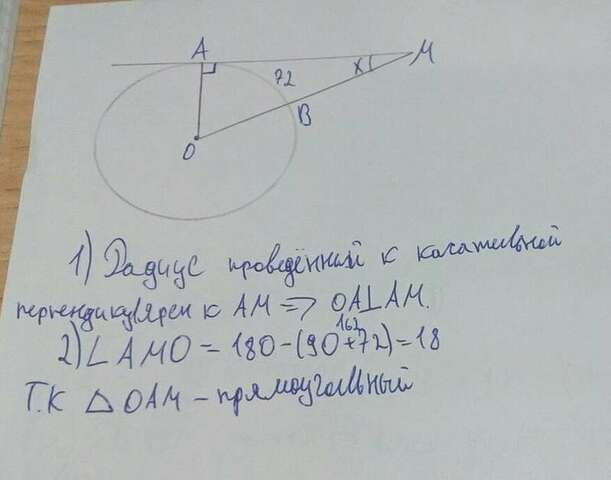 A
M
72
x
B
O
1) Радиус проведённый к касательной
перпендикулярен к AM => OA⊥AM.
162
2) ∠AMO = 180 - (90 + 72) = 18
Т.К △ OAM - прямоугольный